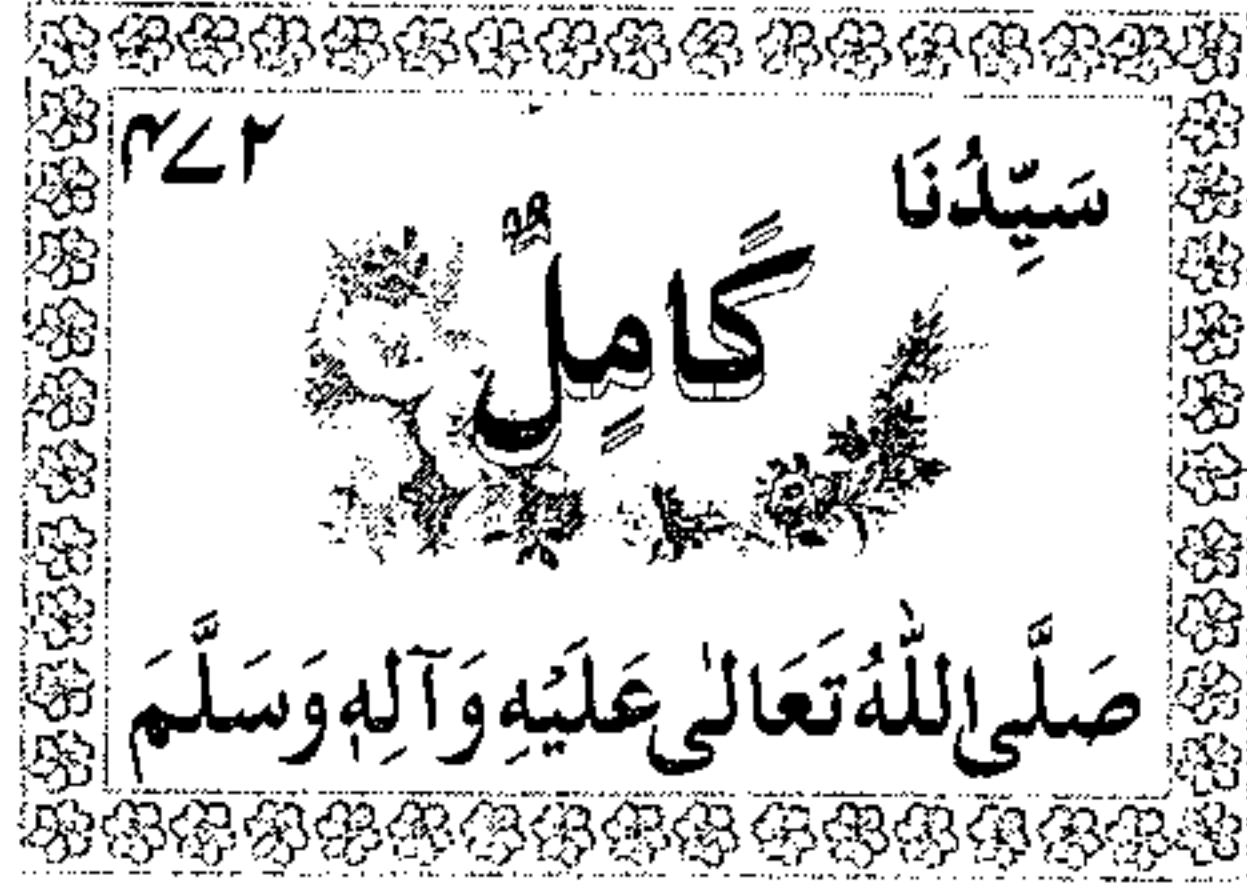 سَيِّدُنَا ۴۷۲
كَامِلٌ
صَلَّى اللّٰهُ تَعَالٰى عَلَيْهِ وَآلِهٖ وَسَلَّمَ